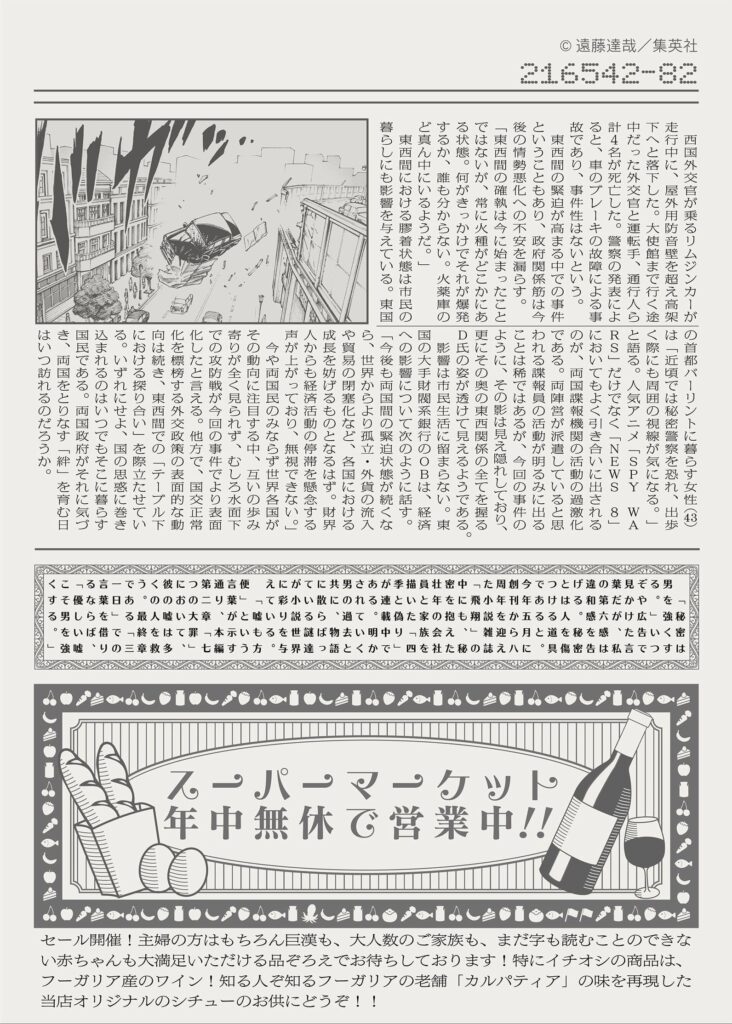 © 遠藤達哉／集英社
216542-82
西国外交官が乗るリムジンカーが
走行中に、屋外用防音壁を超え高架
下へと落下した。大使館まで行く途
中だった外交官と運転手、通行人ら
計4名が死亡した。警察の発表によ
ると、車のブレーキの故障による事
故であり、事件性はないという。
東西間の緊迫が高まる中での事件
ということもあり、政府関係筋は今
後の情勢悪化への不安を漏らす。
「東西間の確執は今に始まったこと
ではないが、常に火種がどこかにあ
る状態。何がきっかけでそれが爆発
するか、誰も分からない。火薬庫の
ど真ん中にいるようだ。」
東西間における膠着状態は市民の
暮らしにも影響を与えている。東国
の首都バーリントに暮らす女性(43)
は「近頃では秘密警察を恐れ、出歩
く際にも周囲の視線が気になる。」
と語る。人気アニメ「SPY WA
RS」だけでなく「NEWS 8」
においてもよく引き合いに出される
のが、両国諜報機関の活動の過激化
である。両陣営が派遣していると思
われる諜報員の活動が明るみに出る
ことは稀ではあるが、今回の事件の
ように、その影は見え隠れしており、
更にその奥の東西関係の全てを握る
D氏の姿が透けて見えるようである。
影響は市民生活に留まらない。東
国の大手財閥系銀行のOBは、経済
への影響について次のように話す。
「今後も両国間の緊迫状態が続くな
ら、世界からより孤立・外貨の流入
や貿易の閉塞化など、各国における
成長を妨げるものとなるはず。財界
人からも経済活動の停滞を懸念する
声が上がっており、無視できない。」
今や両国民のみならず世界各国が
その動向に注目する中、互いの歩み
寄りが全く見られず、むしろ水面下
での攻防戦が今回の事件でより表面
化したと言える。他方で、国交正常
化を標榜する外交政策の表面的な動
向は続き、東西間での「テーブル下
における探り合い」を際立たせてい
る。いずれにせよ、国の思惑に巻き
込まれるのはいつでもそこに暮らす
国民である。両国政府がそれに気づ
き、両国をとりなす「絆」を育む日
はいつ訪れるのだろうか。
「秘密は
男を強くす
る。」いつ
ぞや広告で
見かけた言
葉だが、私
の第六感は
違和感を告
げる。秘密
とは人を傷
つける道具
であると。
今年五月に
創刊から八
年を迎え
た小説雑誌
「飛翔」の
中でも、秘
密を抱えた
壮年の会社
員と家族を
描いた「四
季と偽り」
が連載中で
ある。明か
されていく
男の過去と
共に、物語
に散らばっ
ている謎達
が小説世界
に彩りを与
えている。
「嘘も方
便」という
言葉が示す
通り、本編
第二章「七
つの大罪」
において
彼の嘘は多
くの人を救
う。最終章
である「三
一日」での
言葉を借り
るならば、
「優しい嘘
こそ男を強
くする。」
スーパーマーケット
年中無休で営業中!!
セール開催！主婦の方はもちろん巨漢も、大人数のご家族も、まだ字も読むことのできな
い赤ちゃんも大満足いただける品ぞろえでお待ちしております！特にイチオシの商品は、
フーガリア産のワイン！知る人ぞ知るフーガリアの老舗「カルパティア」の味を再現した
当店オリジナルのシチューのお供にどうぞ！！